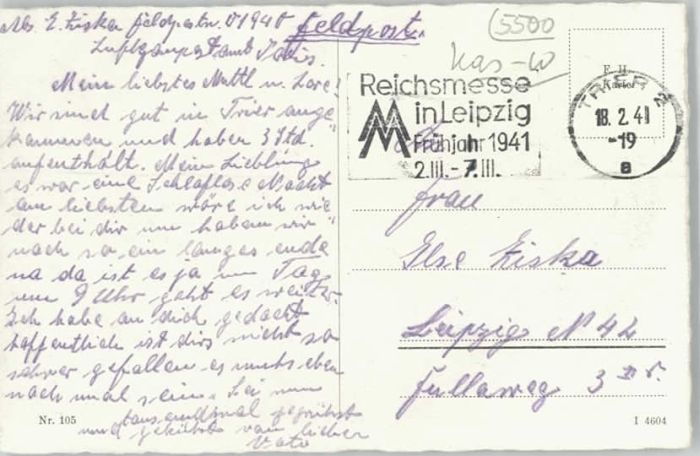 Abs. E. Ziska Feldpostn. 01940
Luftgaupostamt Paris.
Feldpost.
Mein liebstes Muttl u. Lore!
Wir sind gut in Trier ange
kommen und haben 3 Std.
aufenthalt. Mein Liebling
es war eine Schlaflose Nacht
am liebsten wäre ich wie
der bei dir nu haben wir
noch so ein langes ende
na da ist es ja um Tag
um 9 Uhr geht es weiter
Ich habe an dich gedacht
hoffentlich ist dirs nicht so
schwer gefallen es muts eben
noch mal sein. Sei nun
tausendmal gegrüsst
und geküsst von lieber
Vati
5500
F. H.
Karte
Reichsmesse
in Leipzig
Frühjahr 1941
2.III.-7.III.
TRIER 2
18.2.41
-19
a
An
Frau
Else Ziska
Leipzig N 42
Fullaweg 3 III r.
Nr. 105
I 4604